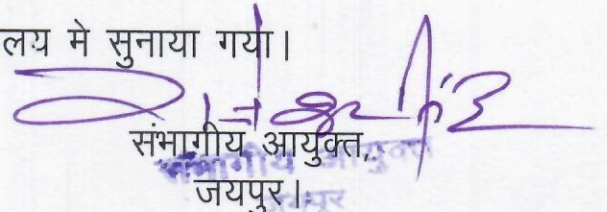 लय मे सुनाया गया।
संभागीय आयुक्त,
जयपुर।
संभागीय आयुक्त
जयपुर